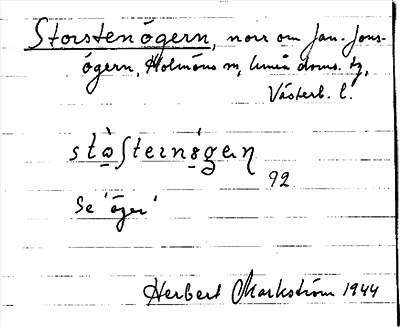 Storstenögern, norr om Jan-Jons-
ögern, Holmöns sn, Umeå doms. tg,
Västerb. l.
stò̱ʃteinśgęɳ
92
Se 'öger'
Herbert Markström 1944